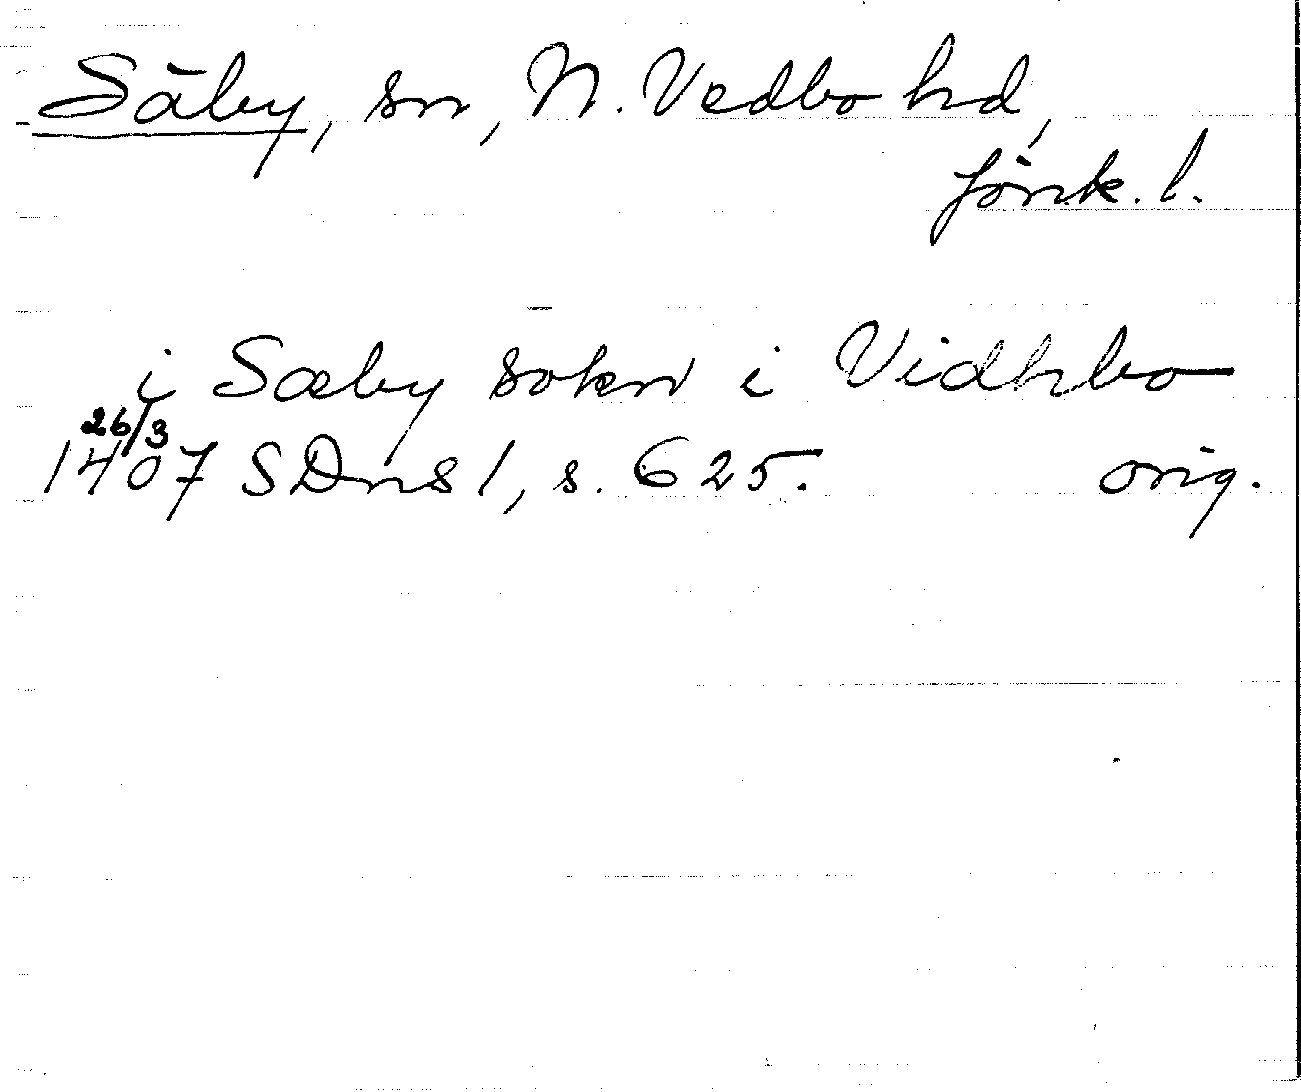 Säby, sn, N. Vedbo hd,
Jönk. l.
i Sæby sokn i Vidhbo
26/3
1407 SDns 1, s. 625. orig.